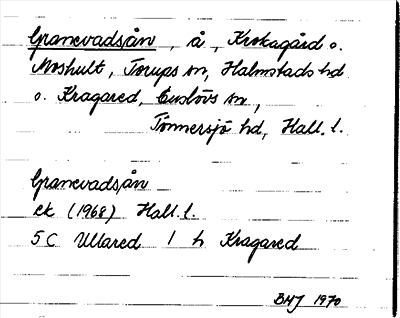 Granevadsån, å, Krokagård o.
Moshult, Torups sn, Halmstads hd
o. Kragared, Enslövs sn,
Tönnersjö hd, Hall. l.
Granevadsån
ek (1968) Hall. l.
5C Ullared 1 h Kragared
BHJ 1970